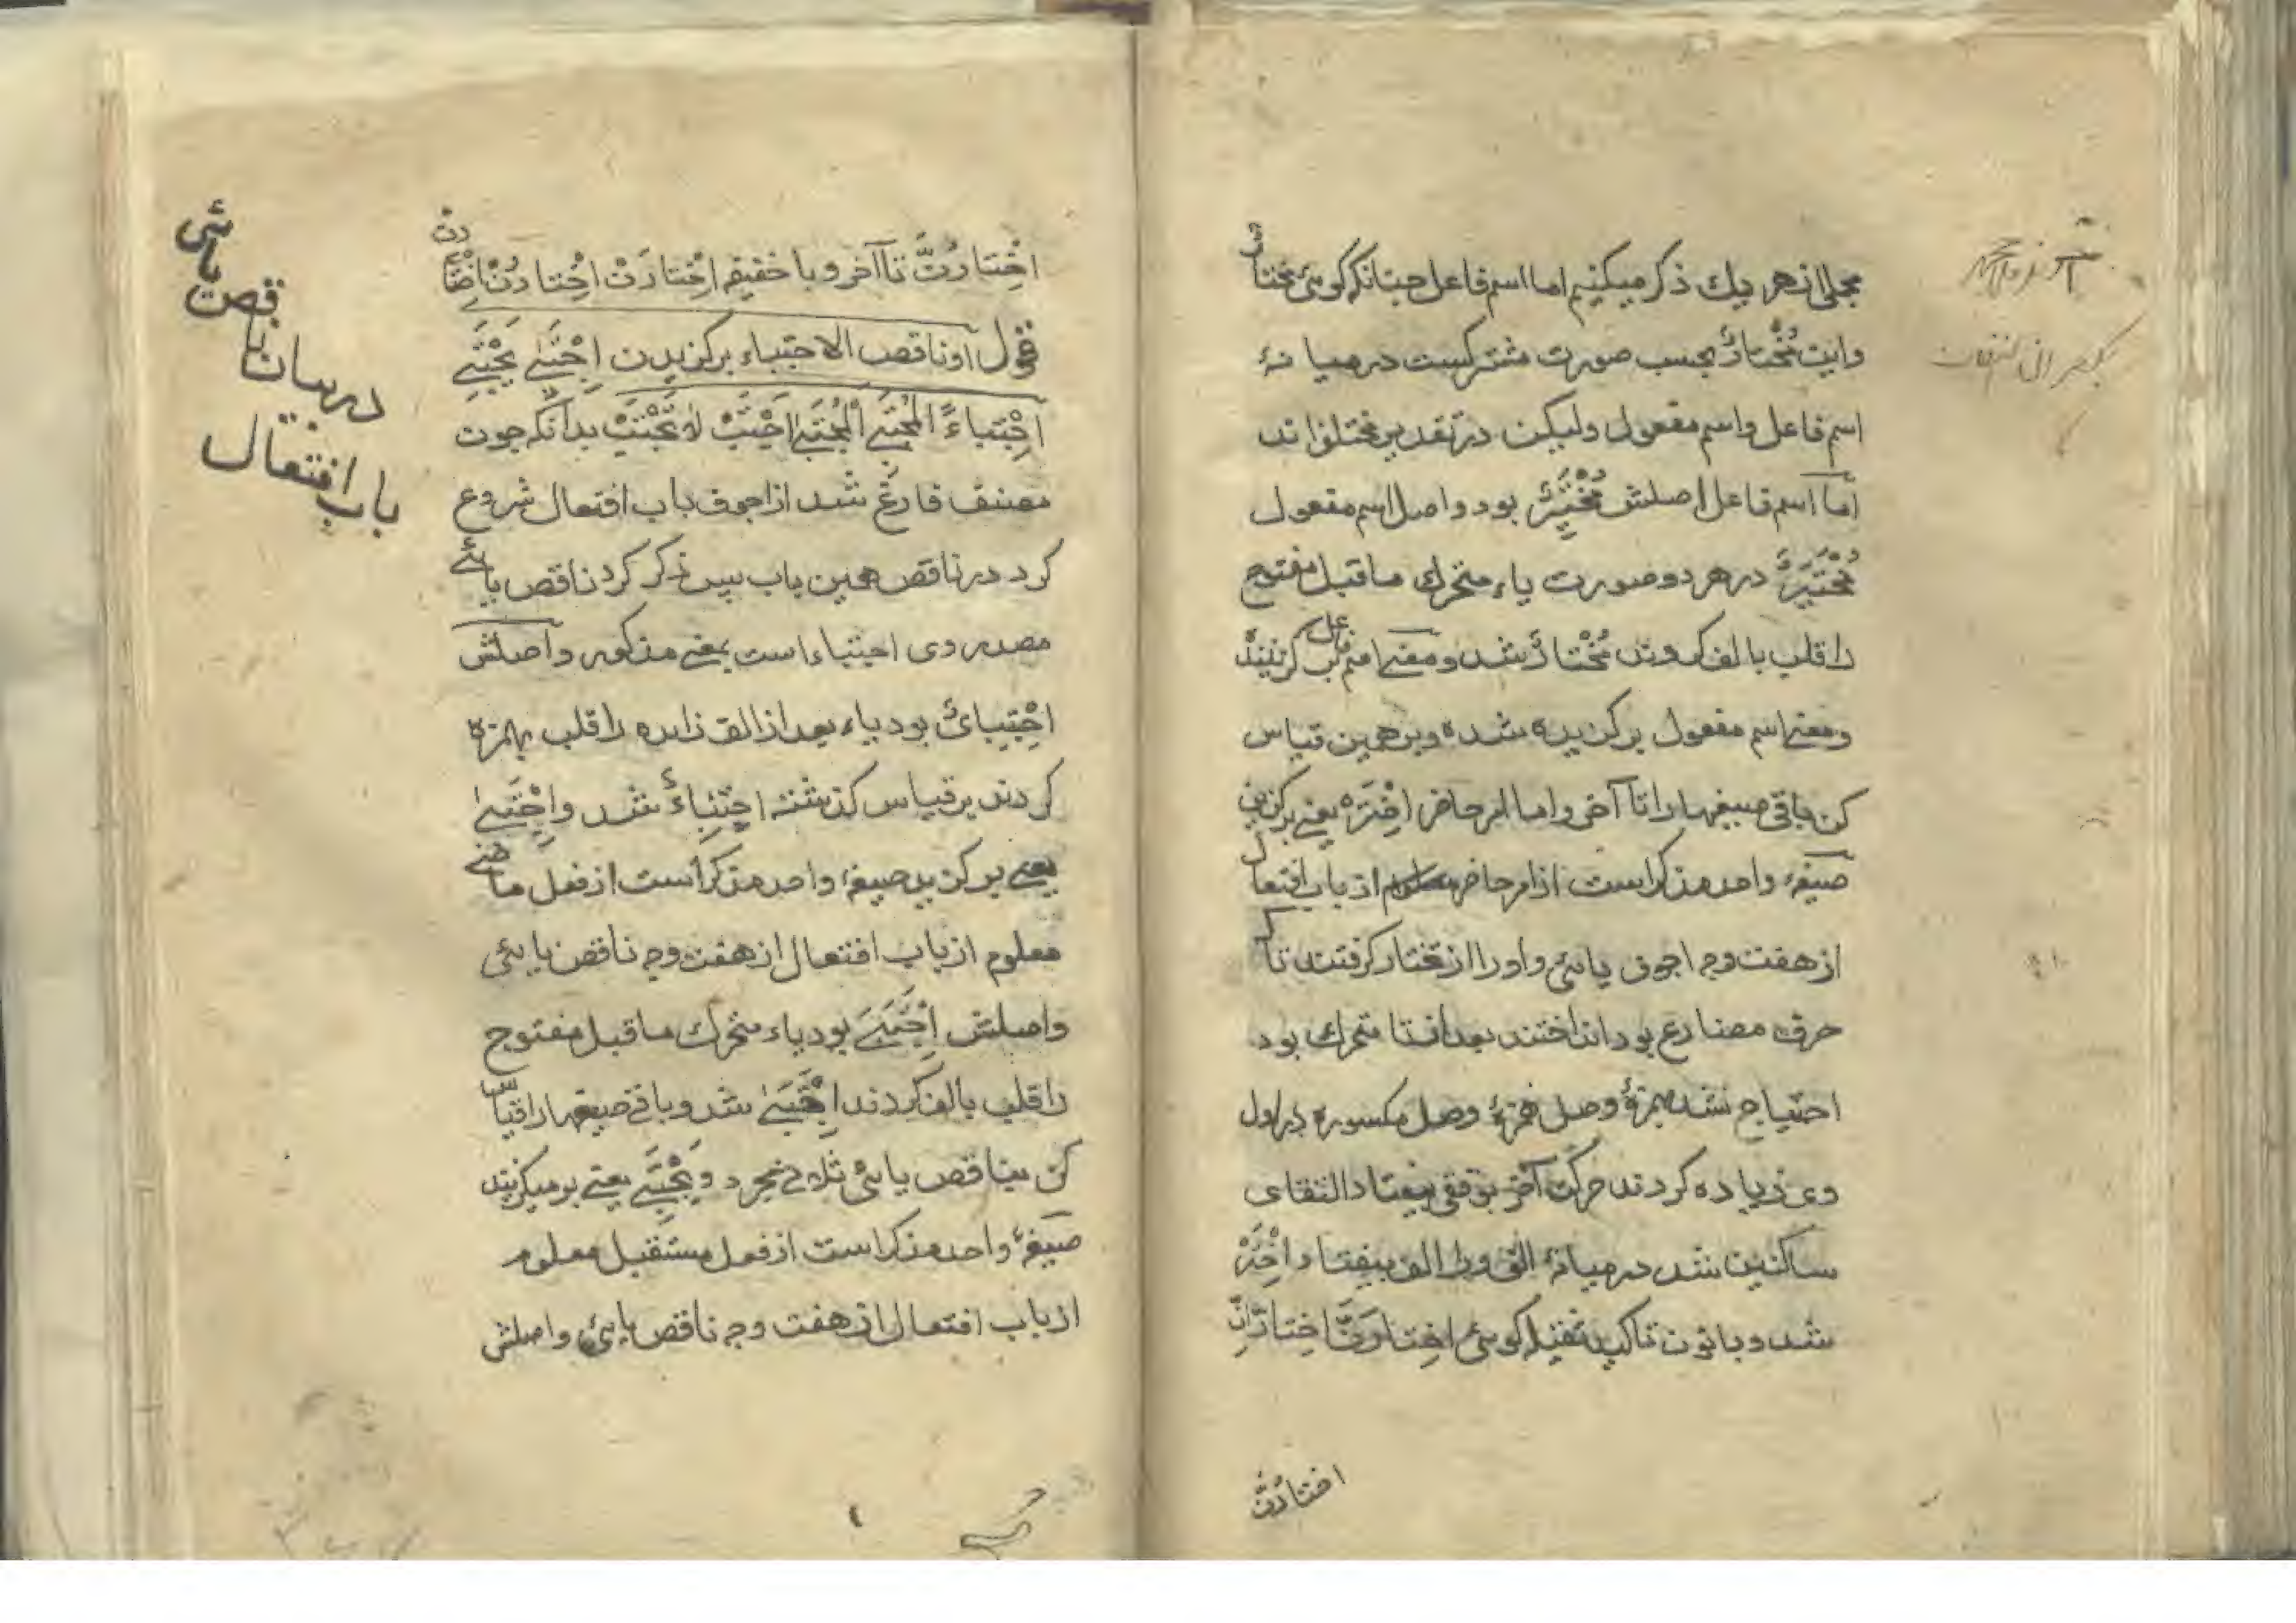 مجملی از هر یك ذکر میکنیم اما اسم فاعل چنانکه کوئی مختارٌ
واین مُخْتارٌ بحسب صورت مشترکست در میانهٔ
اسم فاعل واسم مفعول ولیکن در تقدیر مختلفاند
اما اسم فاعل اصلش مُخْتَیِرٌ بود واصل اسم مفعول
مُخْتَیَرٌ در هر دو صورت یاء متحرك ماقبل مفتوح
را قلب بالف کردند مُخْتارٌ شد ومعنی اسم فاعل
ومعنی اسم مفعول برکزیده شده وبرهمین قیاس
کن باقی صیغهارا تا آخر واما امر حاضر اِخْتَرْ یعنی برکزین
صیغهٔ واحد مذکر است از امر حاضر معلوم از باب افتعال
از هفت وجه اجوف یائی واورا از تختار کرفتند تا که
حرف مضارع بود انداختند بعد از تا متحرك بود
احتیاج شد بهمزهٔ وصل همزهٔ وصل مکسوره در اول
وی زیاده کردند حرکت آخر بوقفی بیفتاد التقای
ساکنین شد در میانهٔ الف ورا الف بیفتاد اِخْتَرْ
شد وبا نون تاکید ثقیله کوئی اِخْتارَنَّ اِخْتارانِّ
اختارُنَّ
اِخْتارُنَّ تا آخر وبا خفیفه اِخْتارَنْ اِخْتارُنْ اِخْتارِنْ
قوله او ناقص الاجتباء برکزیدن اِجْتَبیٰ یَجْتَبِی
اِجْتِباءً المُجْتَبِی المُجْتَبیٰ اِجْتَبِ لا تَجْتَبِ بدانکه چون
مصنف فارغ شد از اجوف باب افتعال شروع
کرد در ناقص همین باب پس ذکر کرد ناقص یائی
مصدر وی اجتباء است بمعنی مذکور واصلش
اِجْتِبایٌ بود یاء بعد از الف زایده را قلب بهمزه
کردند برقیاس کذشته اِجْتِباءٌ شد واِجْتَبیٰ
یعنی برکزید صیغهٔ واحد مذکر است از فعل ماضی
معلوم از باب افتعال از هفت وجه ناقص یایئی
واصلش اِجْتَبَیَ بود یاء متحرك ماقبل مفتوح
را قلب بالف کردند اِجْتَبیٰ شد وباقی صیغهارا قیاس
کن بناقص یائی ثلاثی مجرد ویَجْتَبِی یعنی برمیکزیند
صیغهٔ واحد مذکر است از فعل مستقبل معلوم
از باب افتعال از هفت وجه ناقص یایئی واصلش
یائی
ناقص
در بیان
باب افتعال